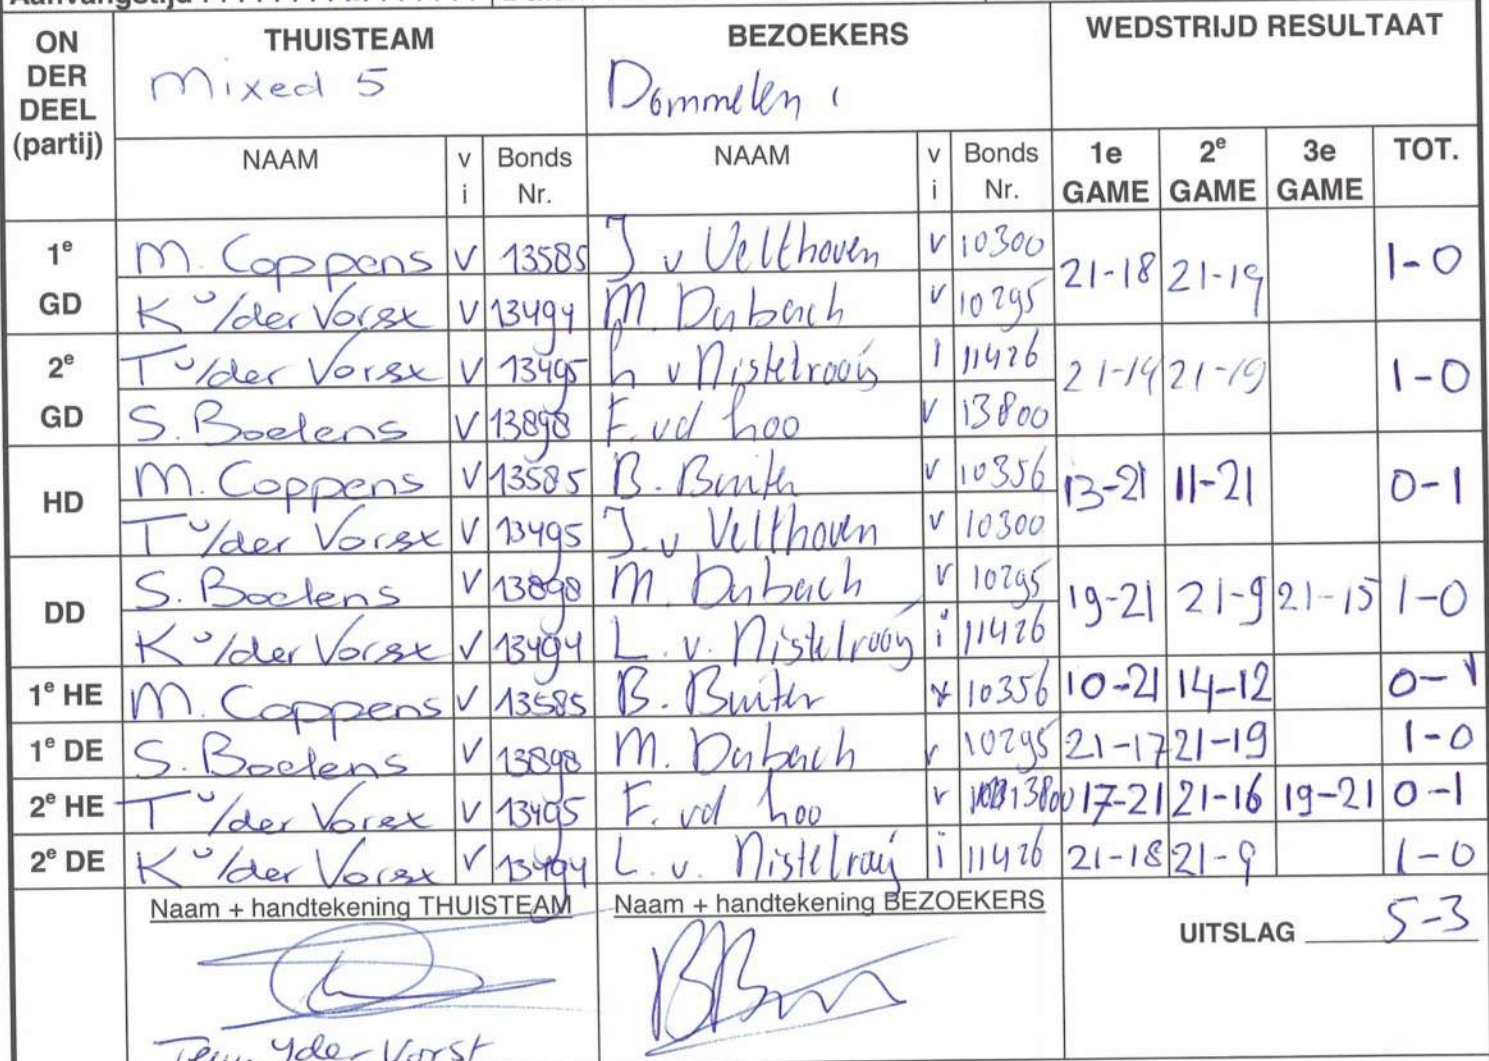 ON DER DEEL (partij) THUISTEAM BEZOEKERS WEDSTRIJD RESULTAAT
Mixed 5 Dommelen 1
NAAM v i Bonds Nr. NAAM v i Bonds Nr. 1e GAME 2e GAME 3e GAME TOT.
1e GD M. Coppens v 13585 J v Velthoven v 10300 21-18 21-19 1-0
K v/der Vorst v 13494 M. Dubach v 10295
2e GD T v/der Vorst v 13495 L v Nistelrooij i 11426 21-14 21-19 1-0
S. Boelens v 13898 F. vd Loo v 13800
HD M. Coppens v 13585 B. Buiter v 10356 13-21 11-21 0-1
T v/der Vorst v 13495 J. v Velthoven v 10300
DD S. Boelens v 13898 M. Dubach v 10295 19-21 21-9 21-15 1-0
K v/der Vorst v 13494 L. v. Nistelrooij i 11426
1e HE M. Coppens v 13585 B. Buiter v 10356 10-21 14-12 0-1
1e DE S. Boelens v 13898 M. Dubach v 10295 21-17 21-19 1-0
2e HE T v/der Vorst v 13495 F. vd Loo v 13800 17-21 21-16 19-21 0-1
2e DE K v/der Vorst v 13494 L. v. Nistelraij i 11426 21-18 21-9 1-0
Naam + handtekening THUISTEAM Naam + handtekening BEZOEKERS
UITSLAG 5-3
v/der Vorst